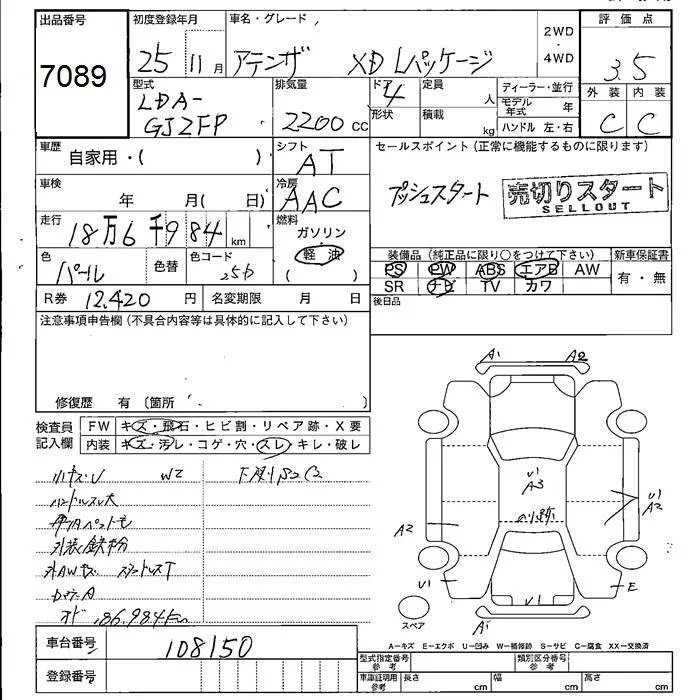 出品番号
7089
初度登録年月
25 11月
車名・グレード
アテンザ XD Lパッケージ
2WD
・
4WD
評価点
3.5
外装 内装
C C
型式
LDA-
GJ2FP
排気量
2200 cc
ドア
4
形状
定員
人
積載
kg
ディーラー・並行
モデル年式 年
ハンドル 左・右
車歴
自家用・( )
シフト
AT
セールスポイント(正常に機能するものに限ります)
プッシュスタート
売切りスタート
SELLOUT
車検
年 月( 日)
冷房
AAC
走行
18万6千984 km
燃料
ガソリン
軽油
( )
色
パール
色替
色コード
25D
装備品(純正品に限り○をつけて下さい)
PS PW ABS エアB AW
SR ナビ TV カワ
新車保証書
有・無
後日品
R券 12,420 円
名変期限 月 日
注意事項申告欄(不具合内容等は具体的に記入して下さい)
修復歴 有 〔箇所
検査員
記入欄
FW キズ・飛石・ヒビ割・リペア跡・X要
内装 キズ・汚レ・コゲ・穴・スレ・キレ・破レ
小キズ・U W2 下廻りS2C2
ハンドルスレ大
外装鉄粉
外AWキズ スタッドレスT
オド 186,984km
A1 A2
U1
A3
のり跡
U1
A2
A2
U1
E
U1
A1
スペア
A−キズ E−エクボ U−凹み W−補修跡 S−サビ C−腐食 XX−交換済
車台番号 108150
登録番号
型式指定番号
参考
類別区分番号
参考
車庫証明用
参考
長さ cm
幅 cm
高さ cm